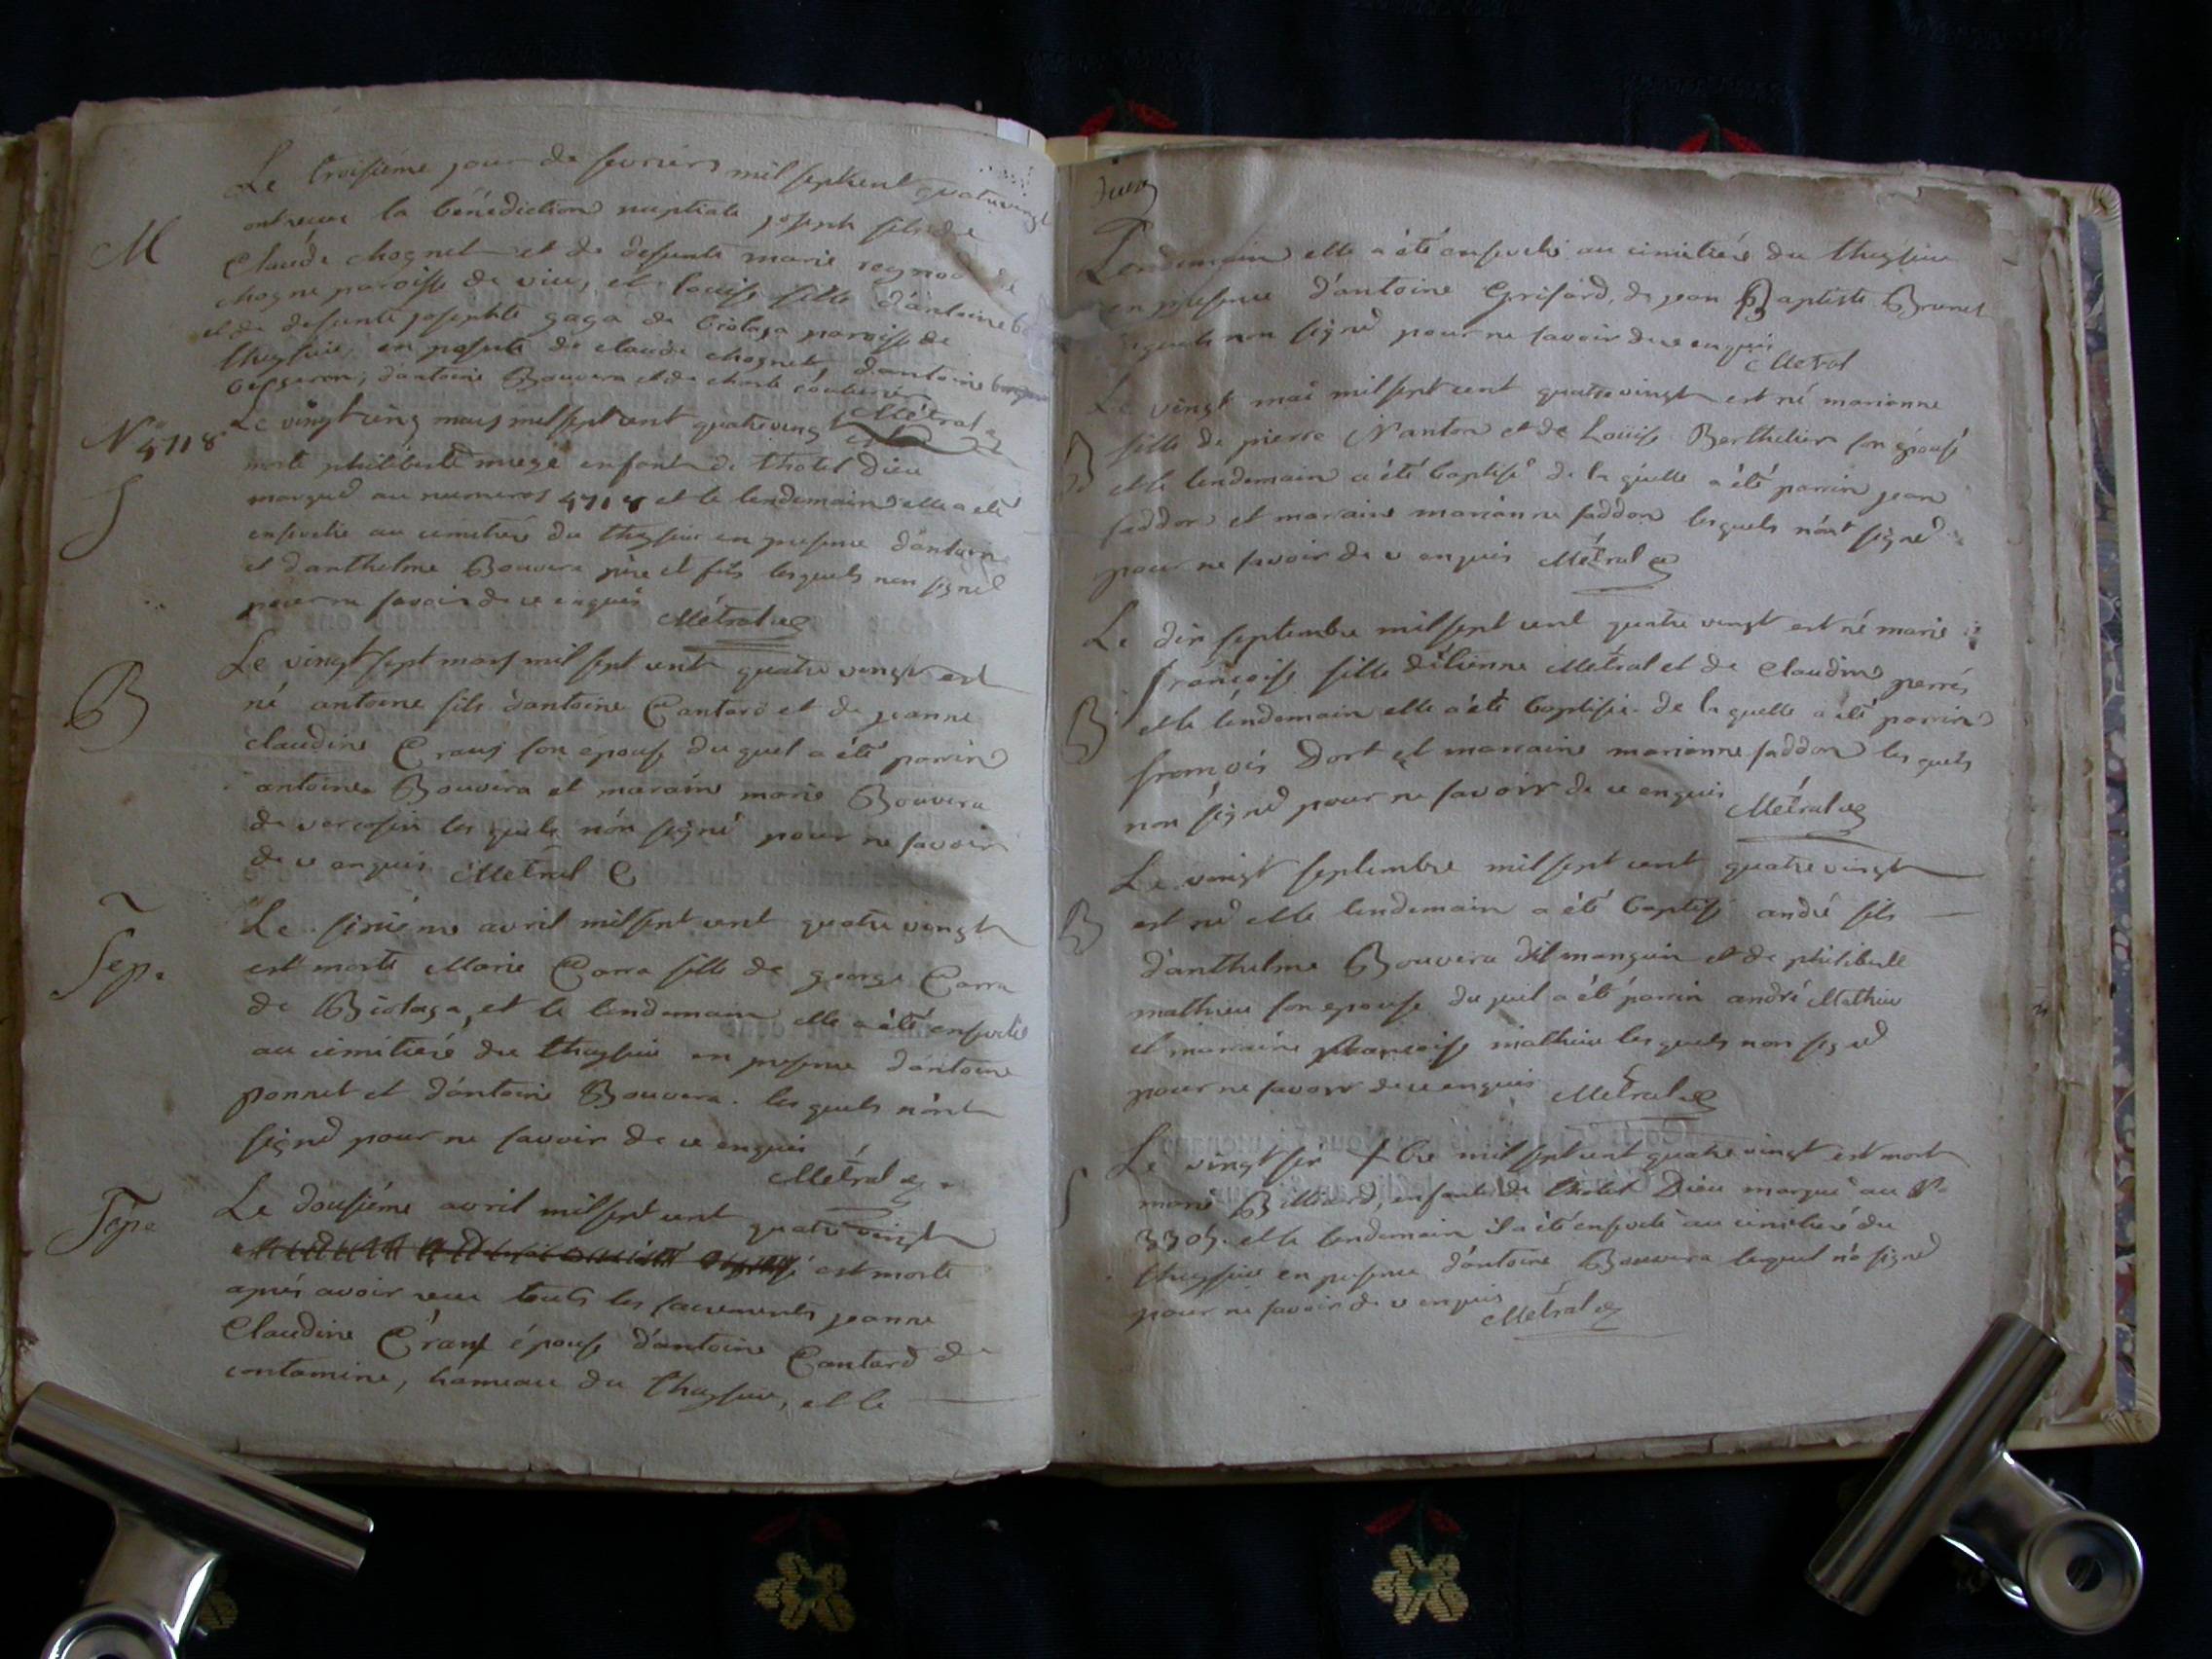 Le troisiéme jour de fevrier mil septcent quatrevingt
ont receu la bénédiction nuptiale joseph fils de
M
Claude chognet et de defunte marie reynod de
chogne paroisse de vieu, et louise fille d'antoine
et de defunte josephte gaga de biolaga paroisse de
thuysieu, en presence de claude chognet, d'antoine
d'antoine Bouvera et de charle
Métral
N° 4718
Le vingt cinq mars mil sept cent quatreving est
morte philiberte muge enfant de l'hotel Dieu
S
marqué au numeros 4718 et le lendemain elle a eté
ensevelie au cimitiere du thuysieu en presence d'antoine
et d'anthelme Bouvera père et fils lesquels non signé
pour ne savoir de ce enquis Métral
B
Le vingt sept mars mil sept cent quatre vingt est
né antoine fils d'antoine Cantard et de jeanne
claudine Craus son épouse duquel a été parrin
antoine Bouvera et maraine marie Bouvera
de verosin les quels n'ón signé pour ne savoir
de ce enquis Métral
Sep.
Le sixiéme avril mil sept cent quatre vingt
est morte Marie Carra fille de george Carra
de Biolaga, et le lendemain elle a été ensevelie
au cimitieré du thuysieu en presence d'antoine
ponnet et d'ántoine Bouvera. les quels n'ónt
signé pour ne savoir de ce enquis
Métral
Sepe
Le dousiéme avril mil sept cent quatre vingt
est morte
aprés avoir receu touts les sacrements jeanne
Claudine Crans épouse d'antoine Cantard de
contamine, hameau du thuysieu, et le
Lendemain elle a été ensevelie au cimitiere du thuysieu
en presence d'antoine Grisard, de jean Baptiste Brunet
lequels non signé pour ne savoir de ce enquis
Métral
Le vingt mai mil sept cent quatre vingt est né marianne
B
fille de pierre Nanton et de Loüise Berthelier son épouse
et le lendemain a été baptisé de la quelle a été parrin jean
faddon et maraine marianne faddon lesquels n'ont signé
pour ne savoir de ce enquis Métral
Le dix septembre mil sept cent quatre vingt est né marie
françoise fille d'étienne Métral et de Claudine perrés
B
et le lendemain elle a été baptisée de la quelle a été parrin
françois Dort et marraine marianne faddon les quels
non signé pour ne savoir de ce enquis Métral
Le vingt septembre mil sept cent quatre vingt
B
est né et le lendemain a été baptisé andré fils
d'anthelme Bouvera dit manguin et de philiberte
mathieu son epouse duquel a été parrin andré Mathieu
et maraine françoise mathieu les quels non signé
pour ne savoir de ce enquis Métral
Le vingt six 7bre mil sept cent quatre vingt est mort
S
marié Billierard, enfant de l'hotel Dieu marqué au N°
3305. et le lendemain il a été enseveli au cimitiere du
thuysieu en presence d'antoine Bouvera lequel n'a signé
pour ne savoir de ce enquis Métral